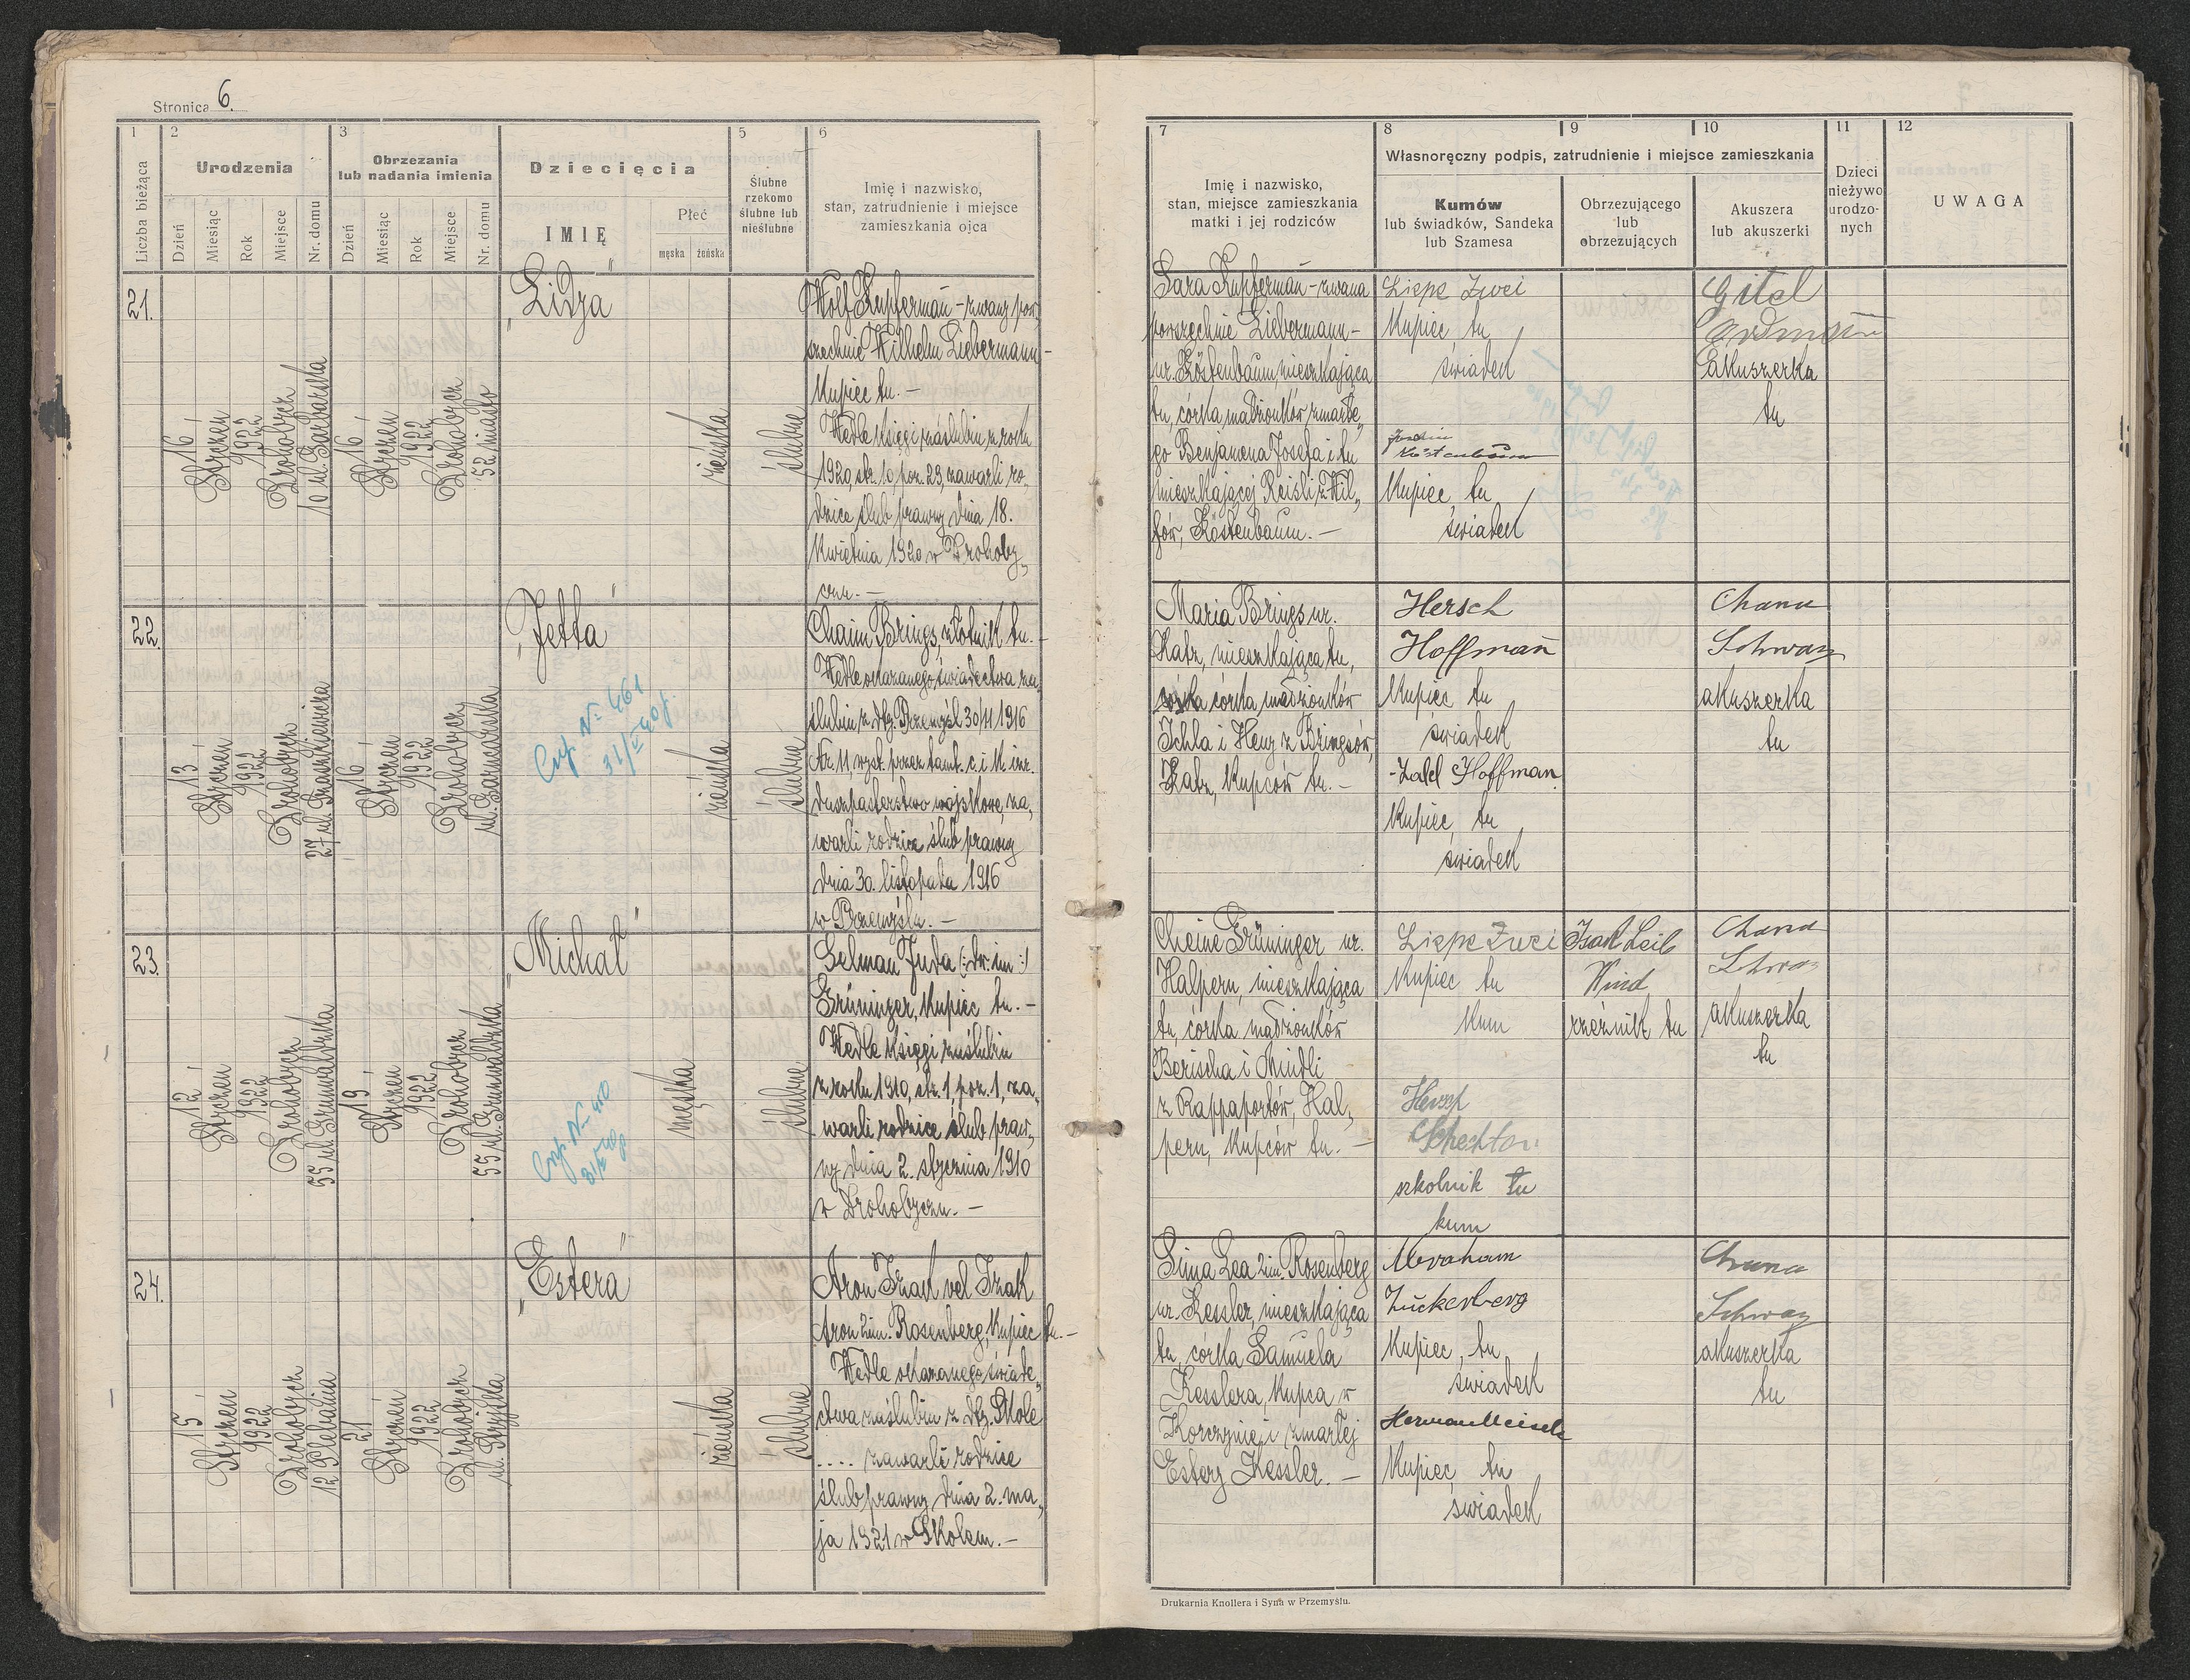 Stronica 6.
1
2
3
5
6
Liczba bieżąca
Urodzenia
Dzień
Miesiąc
Rok
Miejsce
Nr. domu
Obrzezania
lub nadania imienia
Dzień
Miesiąc
Rok
Miejsce
Nr. domu
Dziecięcia
IMIĘ
Płeć
męska
żeńska
Ślubne
rzekomo
ślubne lub
nieślubne
Imię i nazwisko,
stan, zatrudnienie i miejsce
zamieszkania ojca
21.
16
Styczeń
1922
Drohobycz
10 ul. Garbarska
16
Styczeń
1922
Drohobycz
52 miasto
„Lidja"
żeńska
ślubne
Wolf Kupfermann - zwany pow„
szechnie Wilhelm Liebermann -
Kupiec tu. -
Wedle księgi zaślubin z roku
1920, str. 10, poz. 29, zawarli ro„
dzice ślub prawny dnia 18.
Kwietnia 1920 w Drohoby„
czu. -
22.
13
Styczeń
1922
Drohobycz
27 ul.
16
Styczeń
1922
Drohobycz
ul. Garncarska
„Jetta"
żeńska
ślubne
Chaim Brings, złotnik tu. -
Wedle okazanego świadectwa za„
ślubin z dtg. Przemyśl 30/11 1916
Nr. 11, wyst. przez tamt. c. i k. izr.
duszpasterstwo wojskowe, za„
warli rodzice ślub prawny
dnia 30. listopada 1916
w Przemyślu. -
23.
12
Styczeń
1922
Drohobycz
55 ul. Grunwaldzka
19
Styczeń
1922
Drohobycz
55 ul. Grunwaldzka
„Michał"
męska
ślubne
Selman Juda (: dw. im :)
Grüninger, Kupiec tu. -
Wedle księgi zaślubin
z roku 1910, str. 1, poz. 1, za„
warli rodzice ślub praw„
ny dnia 2. stycznia 1910
w Drohobyczu. -
24.
15
Styczeń
1922
Drohobycz
12 Plebania
21
Styczeń
1922
Drohobycz
ul. Stryjska
„Estera"
żeńska
ślubne
Aron Izak vel Izak
Aron 2 im. Rosenberg, Kupiec tu. -
Wedle okazanego świade„
ctwa zaślubin z dtg. Skole
.... zawarli rodzice
ślub prawny dnia 2. ma„
ja 1921 w Skolem. -
7
8
9
10
11
12
Imię i nazwisko,
stan, miejsce zamieszkania
matki i jej rodziców
Własnoręczny podpis, zatrudnienie i miejsce zamieszkania
Kumów
lub świadków, Sandeka
lub Szamesa
Obrzezującego
lub
obrzezujących
Akuszera
lub akuszerki
Dzieci
nieżywo
urodzo-
nych
UWAGA
Sara Kupfermann - zwana
powszechnie Liebermann -
ur. Köstenbaum, mieszkająca
tu, córka małżonków zmarłe„
go Benjamena Josefa i tu
mieszkającej Reisli z Wil„
fów, Köstenbaum. -
Liepe Zwei
Kupiec, tu
świadek
Köstenbaum
Kupiec, tu
świadek
Gitel
Erdmann
akuszerka
tu
Maria Brings ur.
Katz, mieszkająca tu,
córka małżonków
Ichla i Heny z Bringsów,
Katz, Kupców tu. -
Hersch
Hoffmann
Kupiec tu
świadek
Zald Hoffman
Kupiec, tu
świadek
Chana
Schwarz
akuszerka
tu
Cheine Grüninger ur.
Halpern, mieszkająca
tu, córka małżonków
Berischa i Mindli
z Rappaportów, Hal„
pern, Kupców tu. -
Liepe Zwei
Kupiec tu
Kum
Hersch
Schechter
szkolnik tu
kum
Isak Leib
Wind
rzeźnik tu
Chana
Schwarz
akuszerka
tu
Sima Lea 2 im. Rosenberg
ur. Kessler, mieszkająca
tu, córka Samuela
Kesslera, Kupca w
Korczynie i zmarłej
Estery Kessler. -
Abraham
Zuckerberg
Kupiec, tu
świadek
Herman Meisels
Kupiec, tu
świadek
Chana
Schwarz
akuszerka
tu
Drukarnia Knollera i Syna w Przemyślu.